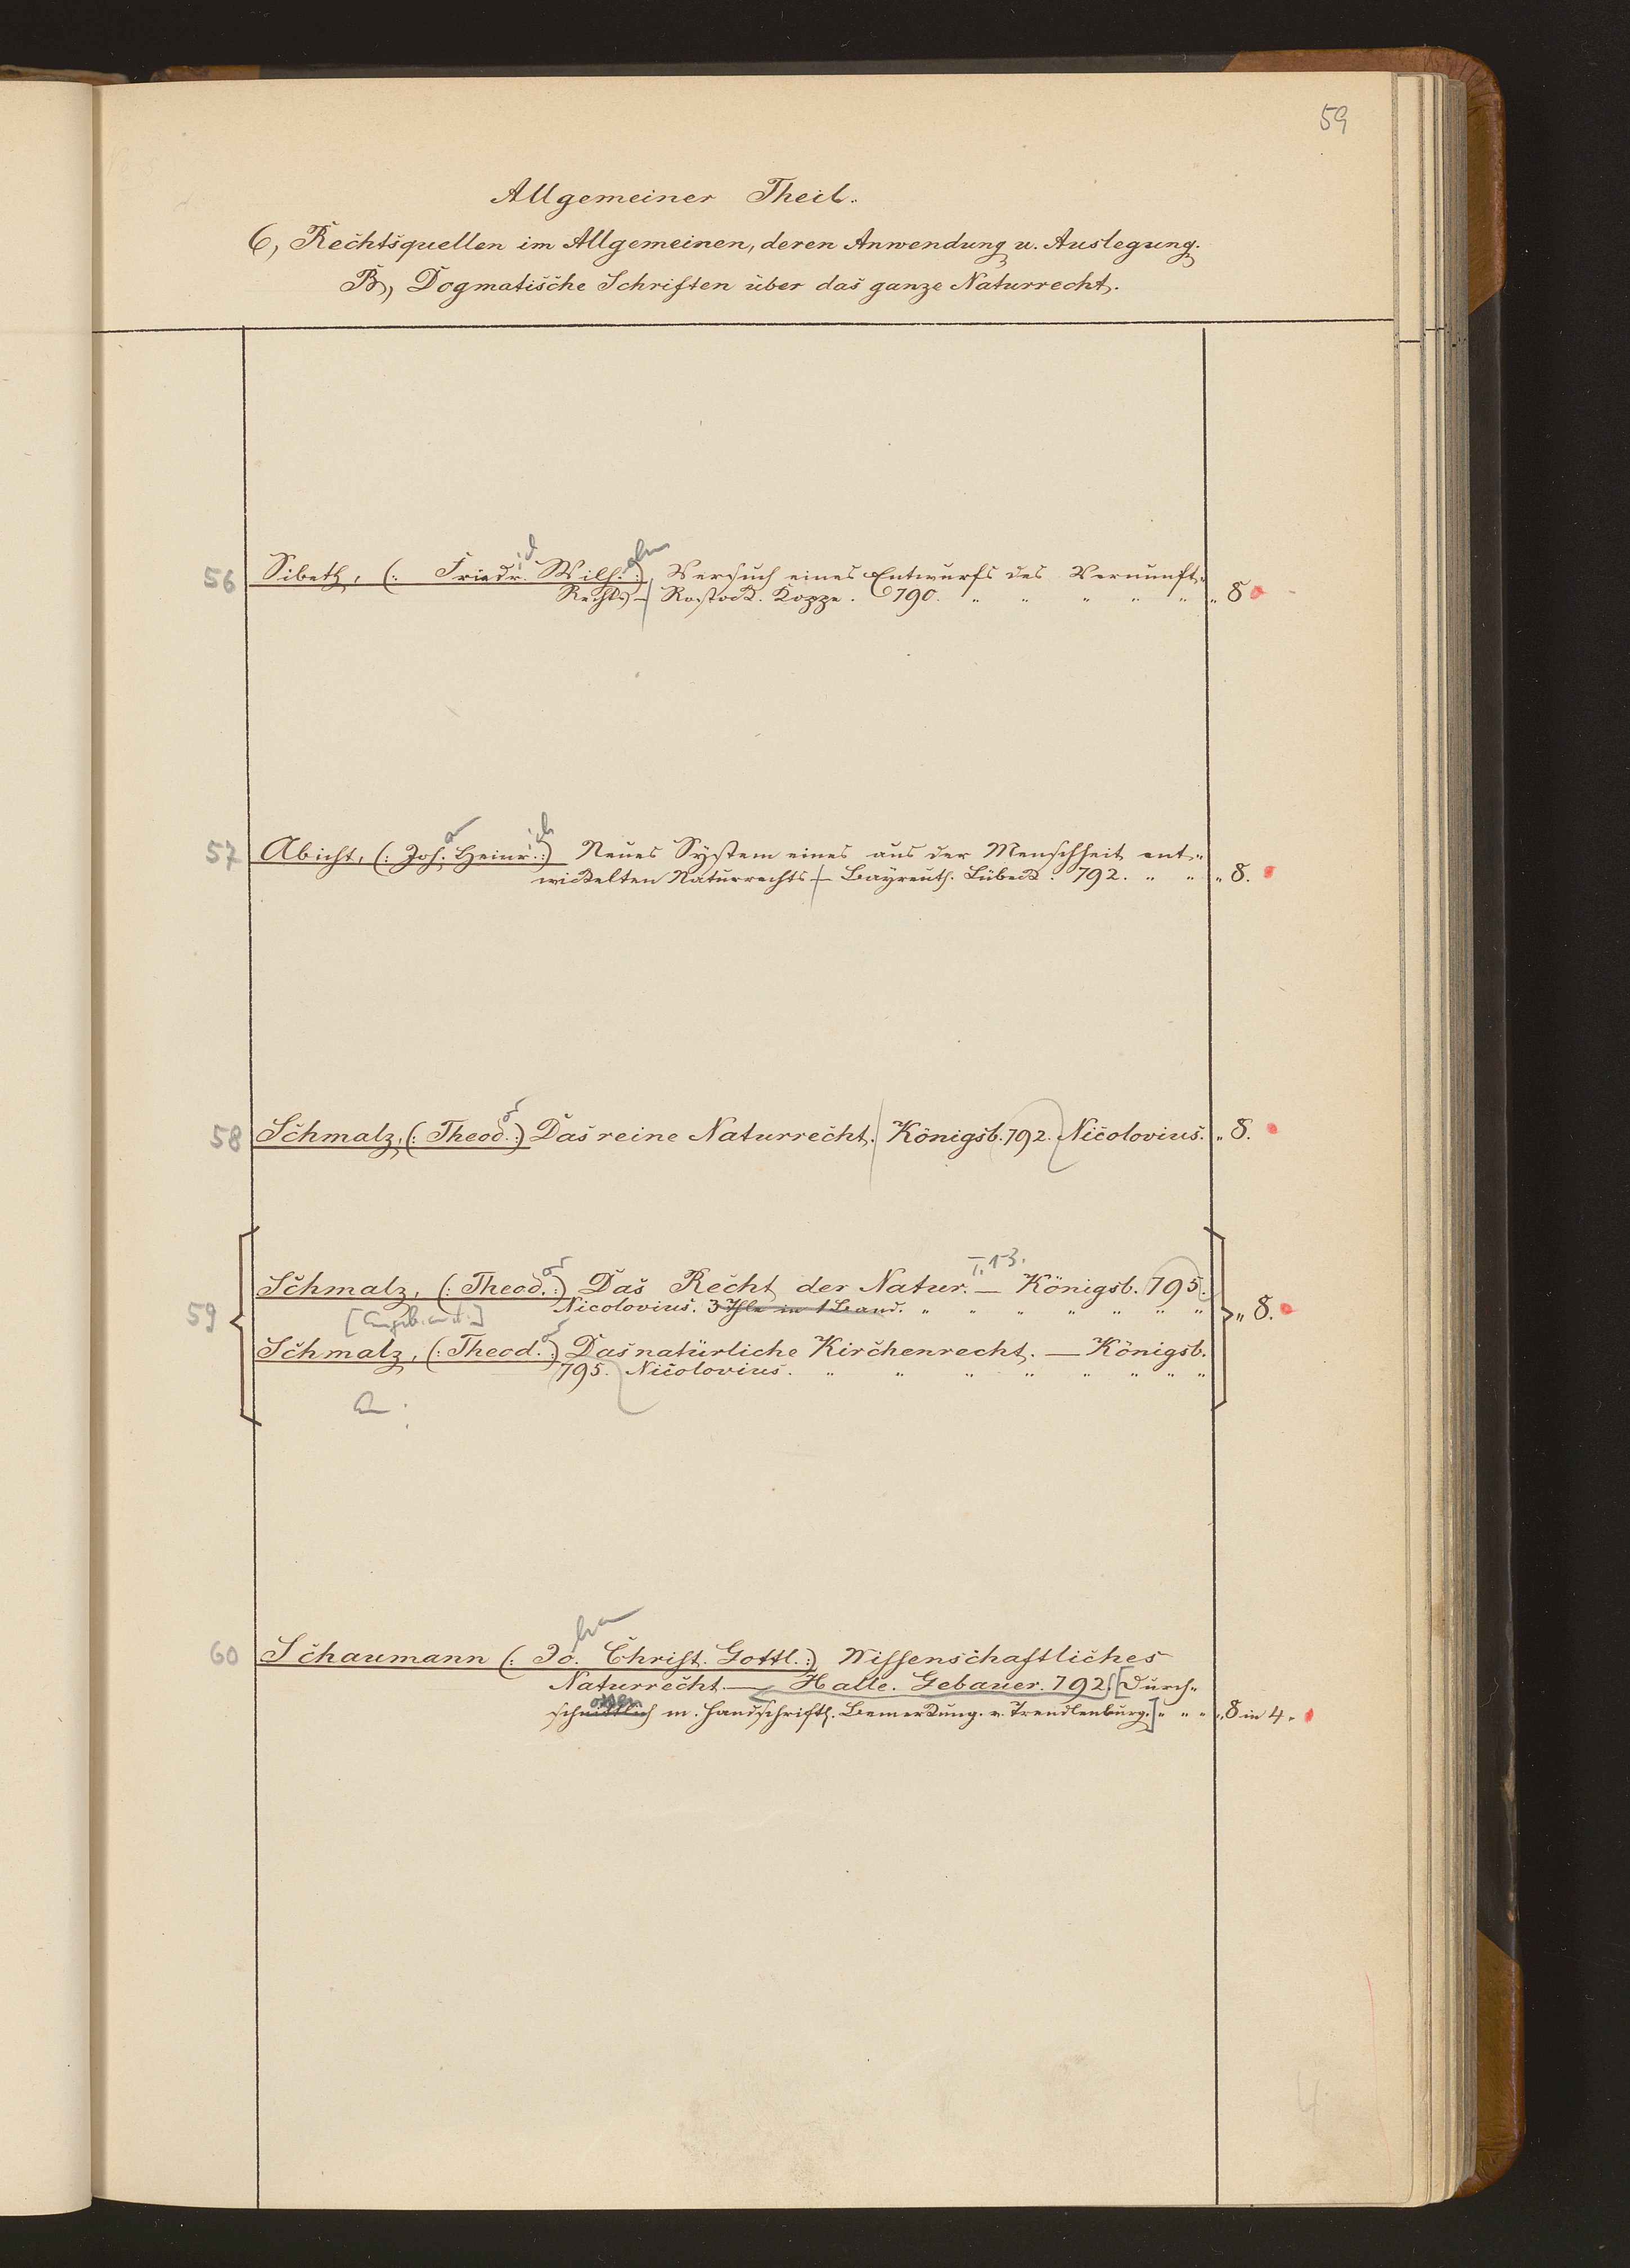 59
Allgemeiner Theil.
6, Rechtsquellen im Allgemeinen, deren Anwendung u. Auslegung.
B, Dogmatische Schriften über das ganze Naturrecht.
56 Sibeth, (: Friedr. Wilh. :) Versuch eines Entwurfs des Vernunft-
Rechts — Rostock. Koppe. 790. " " " " " " 8
57 Abicht, (: Joh. Heinr. :) Neues System eines aus der Menschheit ent-
wickelten Naturrechts — Bayreuth. Lübeck. 792. " " " 8.
58 Schmalz, (: Theod. :) Das reine Naturrecht. Königsb. 792. Nicolovius. " 8.
59 Schmalz, (: Theod. :) Das Recht der Natur. 1-3. — Königsb. 795.
Nicolovius. 3 Thle in 1 Band. " " " " " " " " 8.
Schmalz, (: Theod. :) Das natürliche Kirchenrecht. — Königsb.
795. Nicolovius. " " " " " " " "
60 Schaumann (: Jo. Christ. Gottl. :) Wissenschaftliches
Naturrecht — Halle. Gebauer. 792. [Durch-
schnittlich m. handschriftl. Bemerkung. v. Trendlenburg.] " " " " 8 in 4.
4